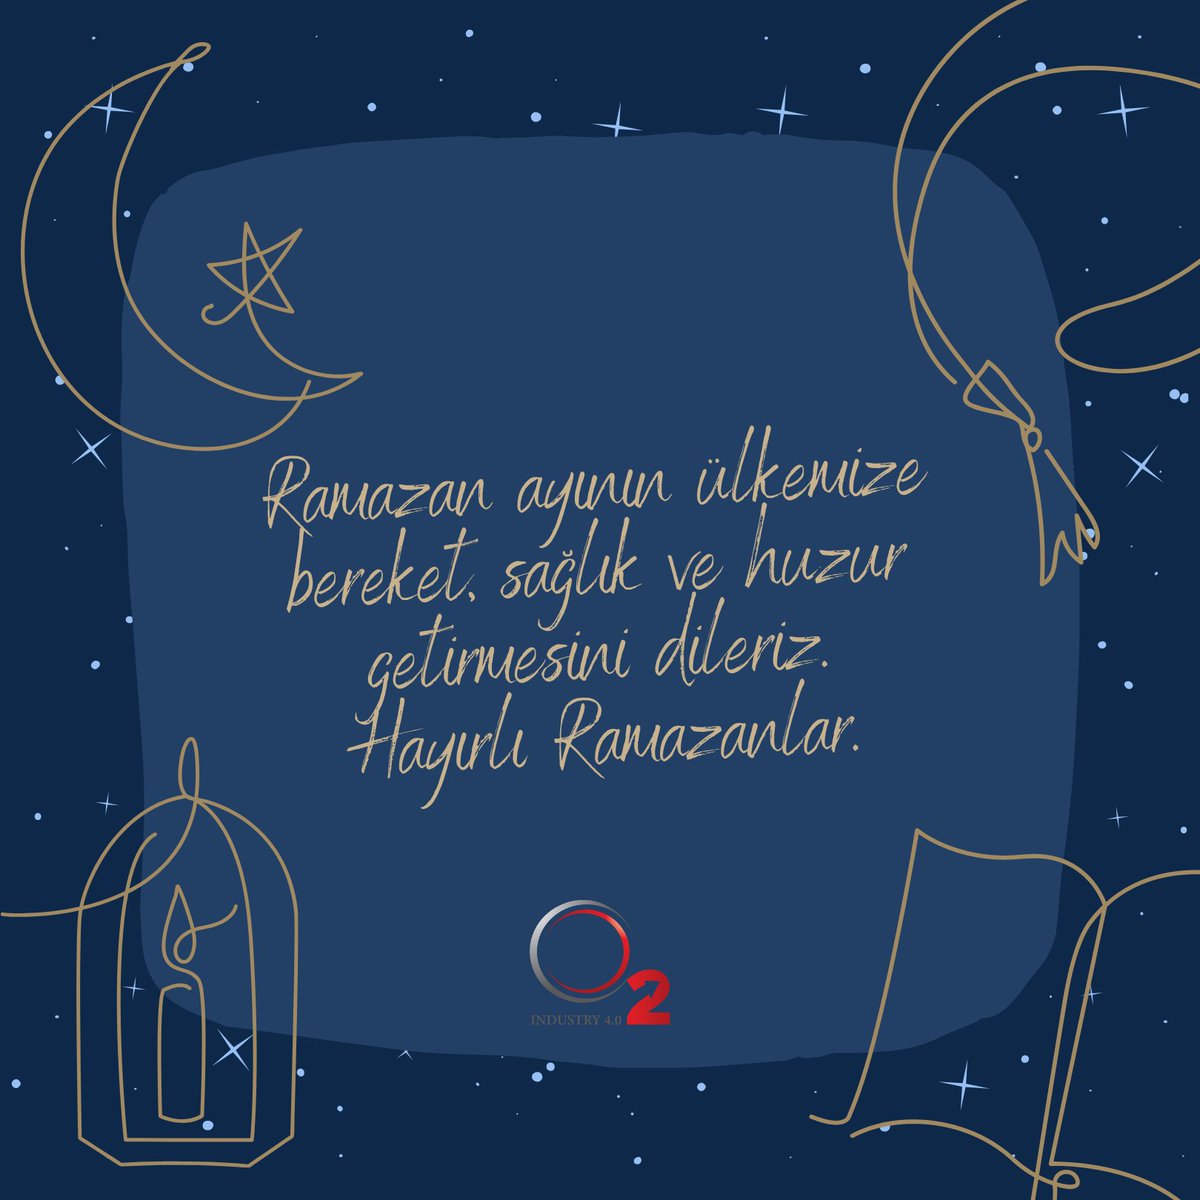 Ramazan ayının ülkemize
bereket, sağlık ve huzur
getirmesini dileriz.
Hayırlı Ramazanlar.
O2
INDUSTRY 4.0